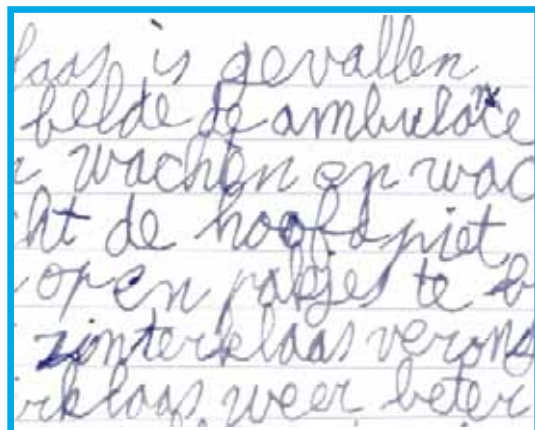 laas is gevallen
belde de ambulance
wachen op wac
cht de hoofdpiet
open pakjes te b
zinterklaas verong
rklaas weer beter